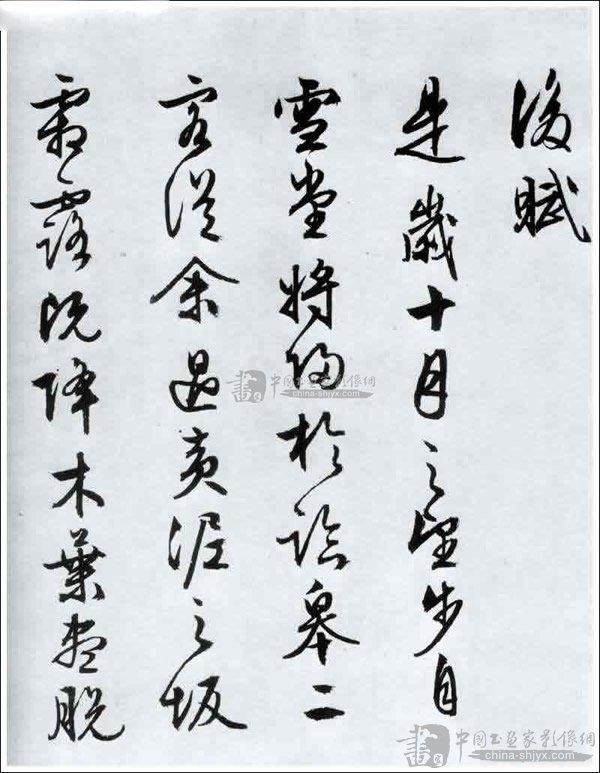 後賦
是歲十月之望步自
雪堂將歸於臨皋二
客從余過黃泥之坂
霜露既降木葉盡脫
書 中国书画家影像網
china-shjyx.com
書 中国书画家影像網
www.china-shjyx.com